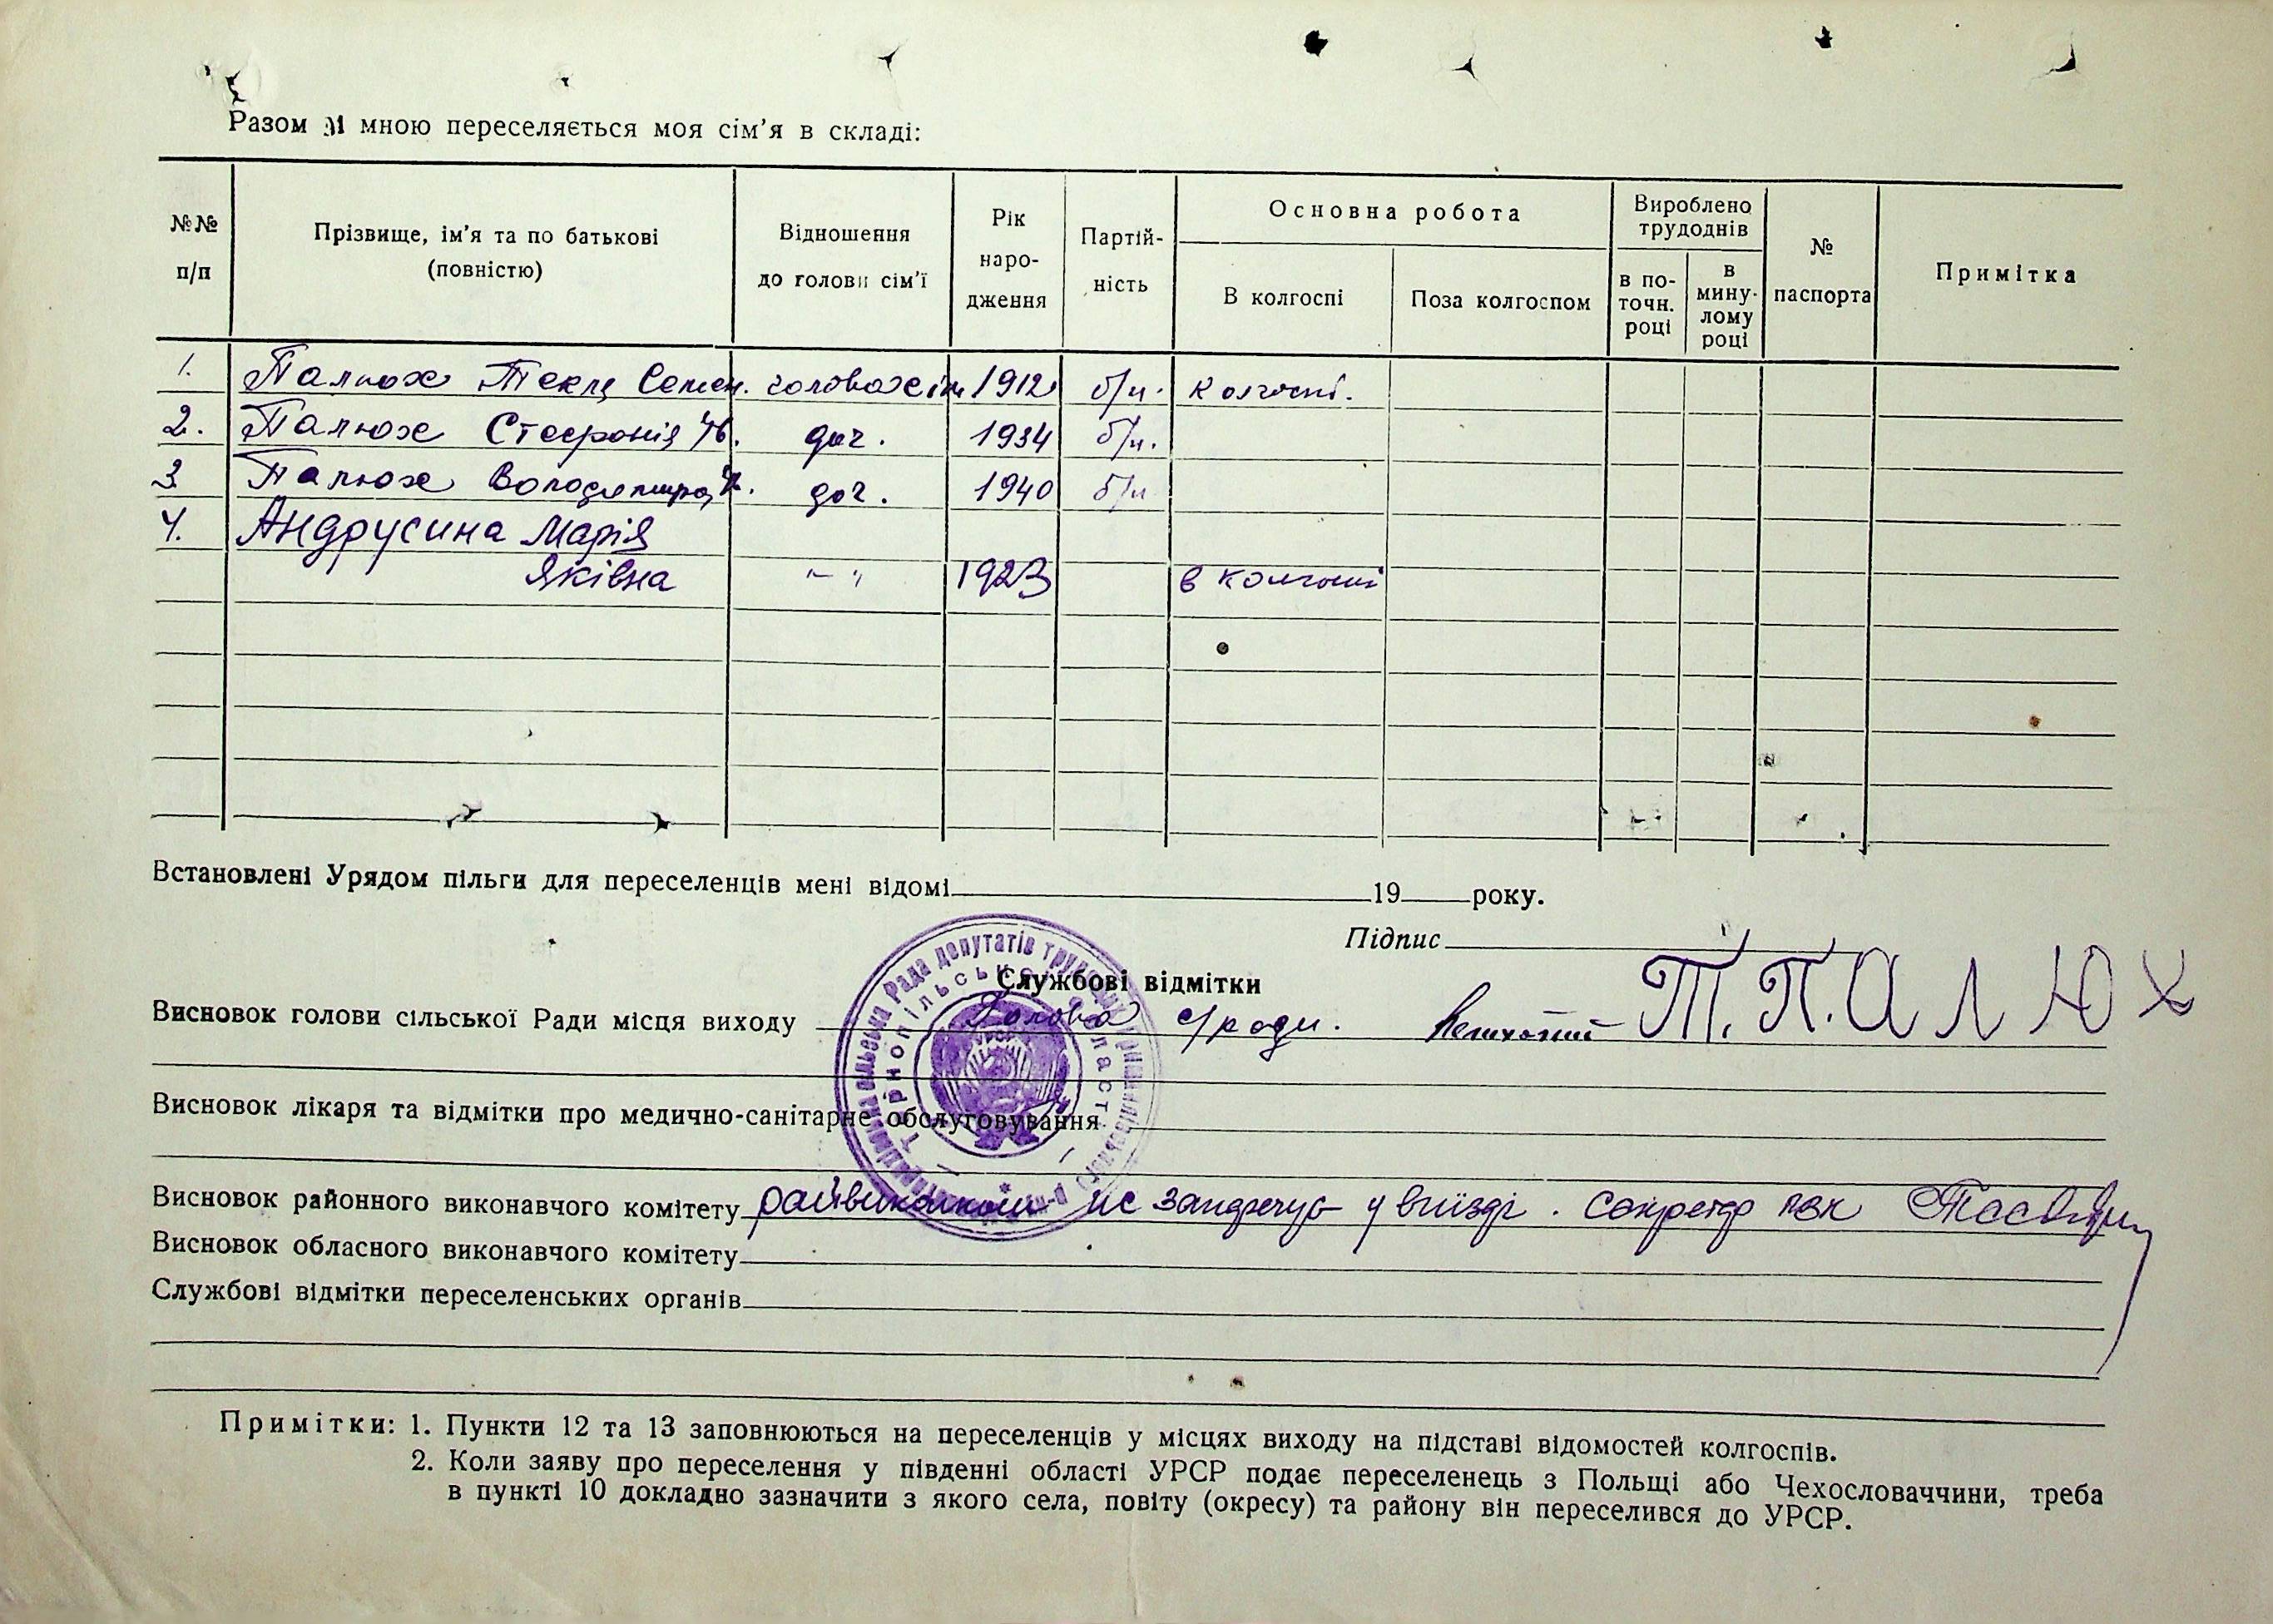 Разом зі мною переселяється моя сім'я в складі:
№№ п/п
Прізвище, ім'я та по батькові (повністю)
Відношення до голови сім'ї
Рік народження
Партійність
Основна робота
В колгоспі
Поза колгоспом
Вироблено трудоднів
в поточн. році
в минулому році
№ паспорта
Примітка
1. Палюх Текля Семен. голова сім 1912 б/п. колгоспі.
2. Палюх Стефонія доч. 1934 б/п.
3 Палюх доч. 1940 б/п
4. Андрусина Марія
Яківна — " 1923 в колгоспі
Встановлені Урядом пільги для переселенців мені відомі 19 року.
Підпис Т. ПАЛЮХ
Службові відмітки
Висновок голови сільської Ради місця виходу Голова с/ради.
Висновок лікаря та відмітки про медично-санітарне обслуговування
Висновок районного виконавчого комітету райвиконком не заперечує у виїзді. Секретар РВК
Висновок обласного виконавчого комітету
Службові відмітки переселенських органів
Примітки: 1. Пункти 12 та 13 заповнюються на переселенців у місцях виходу на підставі відомостей колгоспів.
2. Коли заяву про переселення у південні області УРСР подає переселенець з Польщі або Чехословаччини, треба
в пункті 10 докладно зазначити з якого села, повіту (окресу) та району він переселився до УРСР.